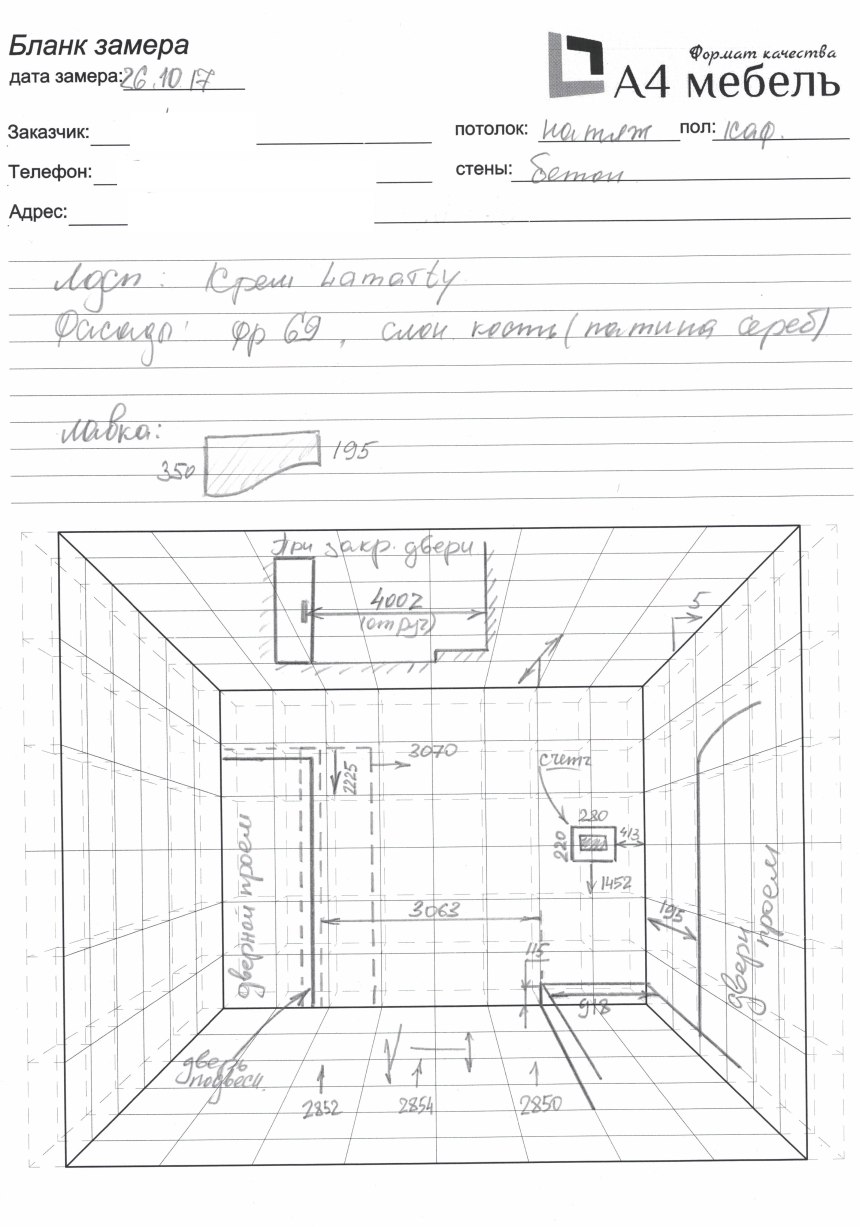 Бланк замера
дата замера: 26.10 17
Формат качества
А4 мебель
Заказчик:
потолок: натяж пол: каф.
Телефон:
стены: бетон
Адрес:
Лдсп: Крем Lamarty
Фасады: фр 69, слон кость (патина сереб)
лавка:
195
350
При закр. двери
4002
(от руч)
5
3070
2225
счетч
280
220
413
1452
дверной проем
3063
195
двери проем
115
918
дверь
подвесн.
2852
2854
2850